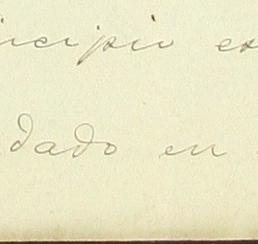 incipio es
dado en